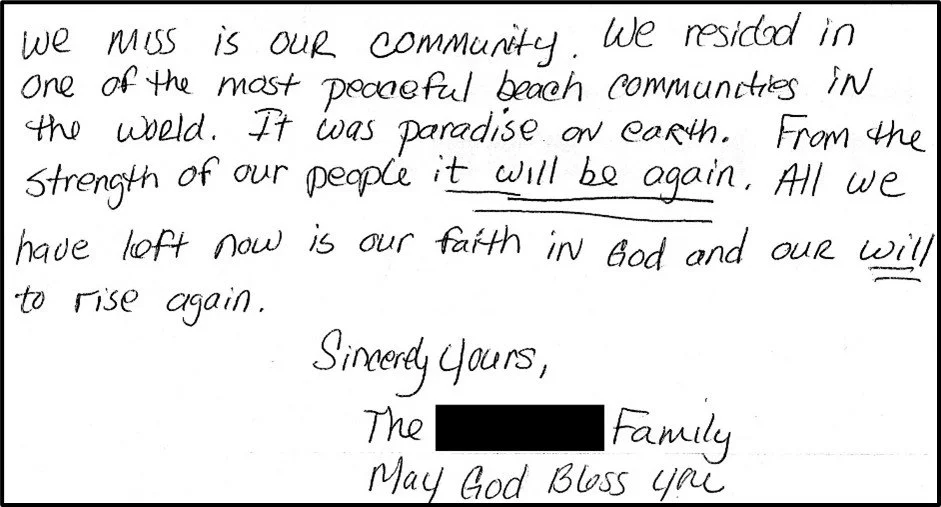 we miss is our community. We resided in
one of the most peaceful beach communities in
the world. It was paradise on earth. From the
strength of our people it will be again. All we
have left now is our faith in God and our will
to rise again.
Sincerely yours,
The Family
May God Bless you